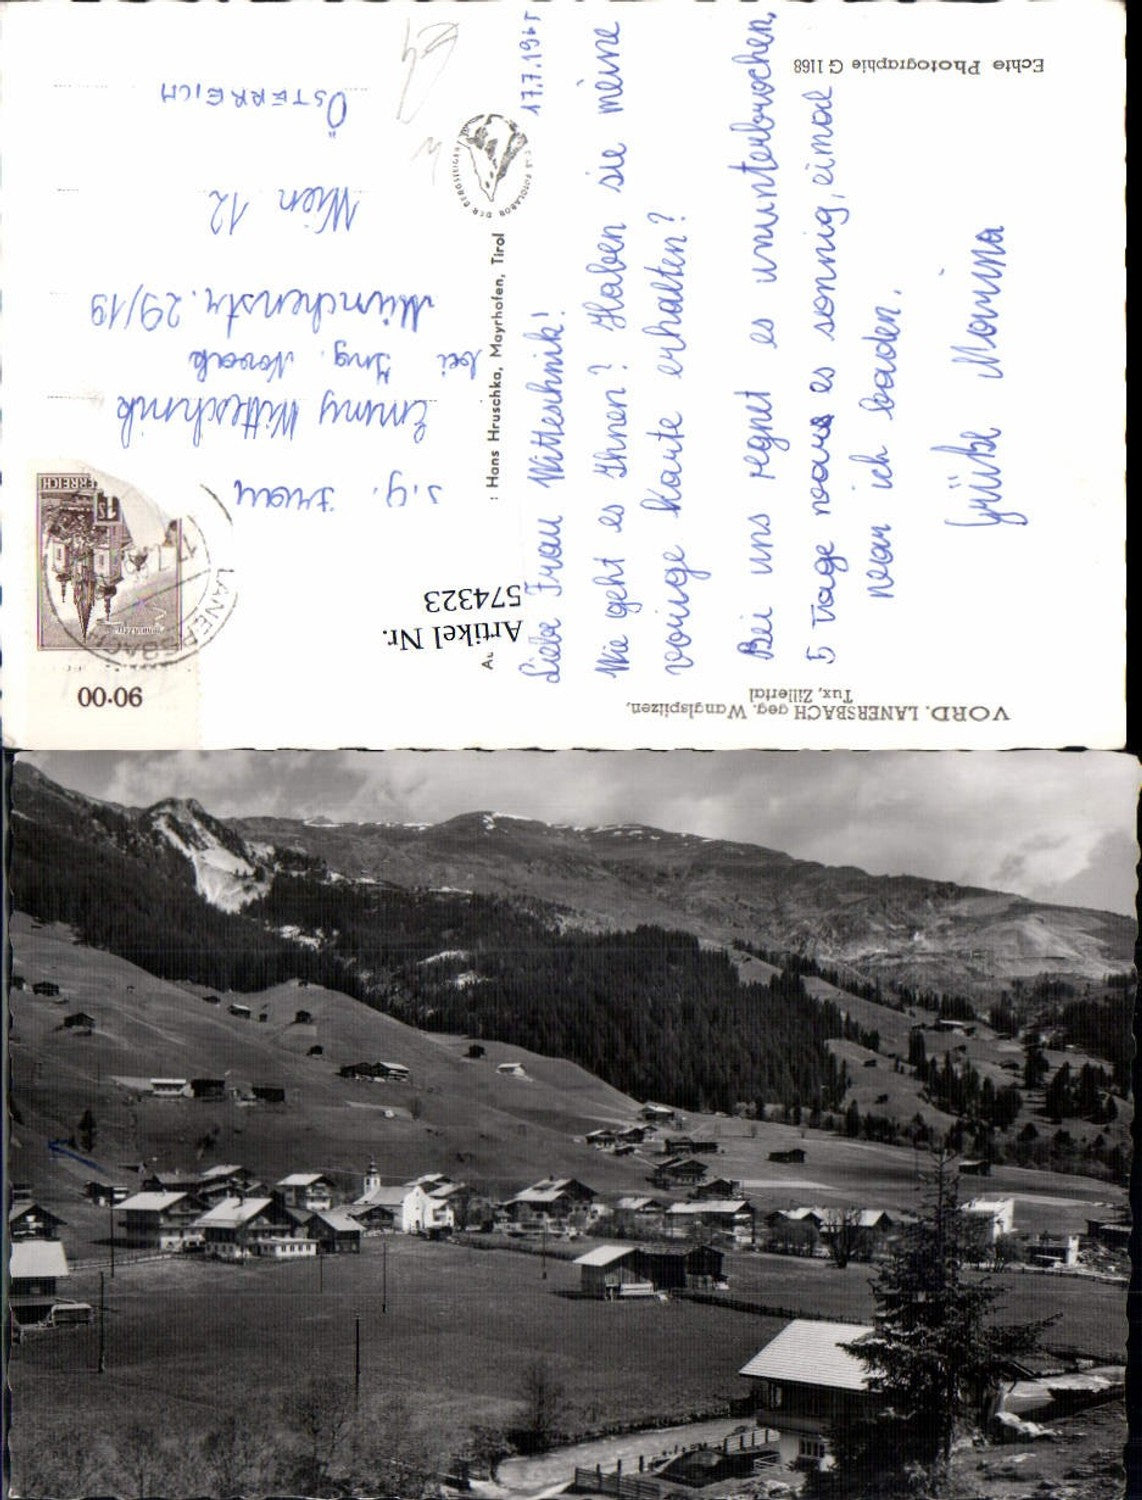 VORD. LANERSBACH geg. Wanglspitzen,
Tux, Zillertal
Echte Photographie G 1168
17.7.1965
Liebe Frau Witteschnik!
Wie geht es Ihnen? Haben sie meine
vorige Karte erhalten?
Bei uns regnet es ununterbrochen,
5 Tage war es sonnig, eimal
war ich baden.
Grüße Marina
: Hans Hruschka, Mayrhofen, Tirol
Artikel Nr.
574323
90.00
S
ERREICH
LANERSBACH
S.g. Frau
Emmy Witteschnik
bei Ing. Novak
Münchenstr. 29/19
Wien 12
ÖSTERREICH